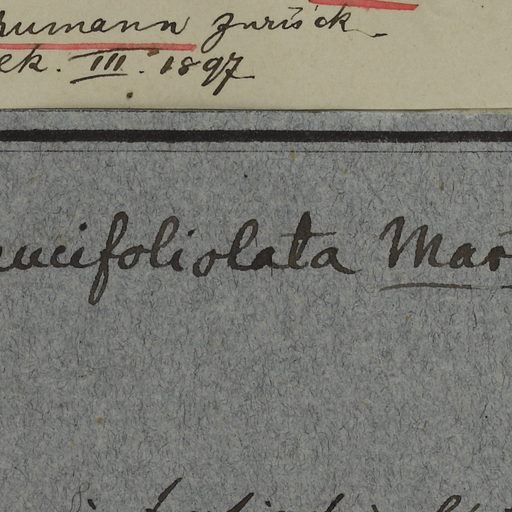 humann zurück
ek. III. 1897
aucifoliolata Mar